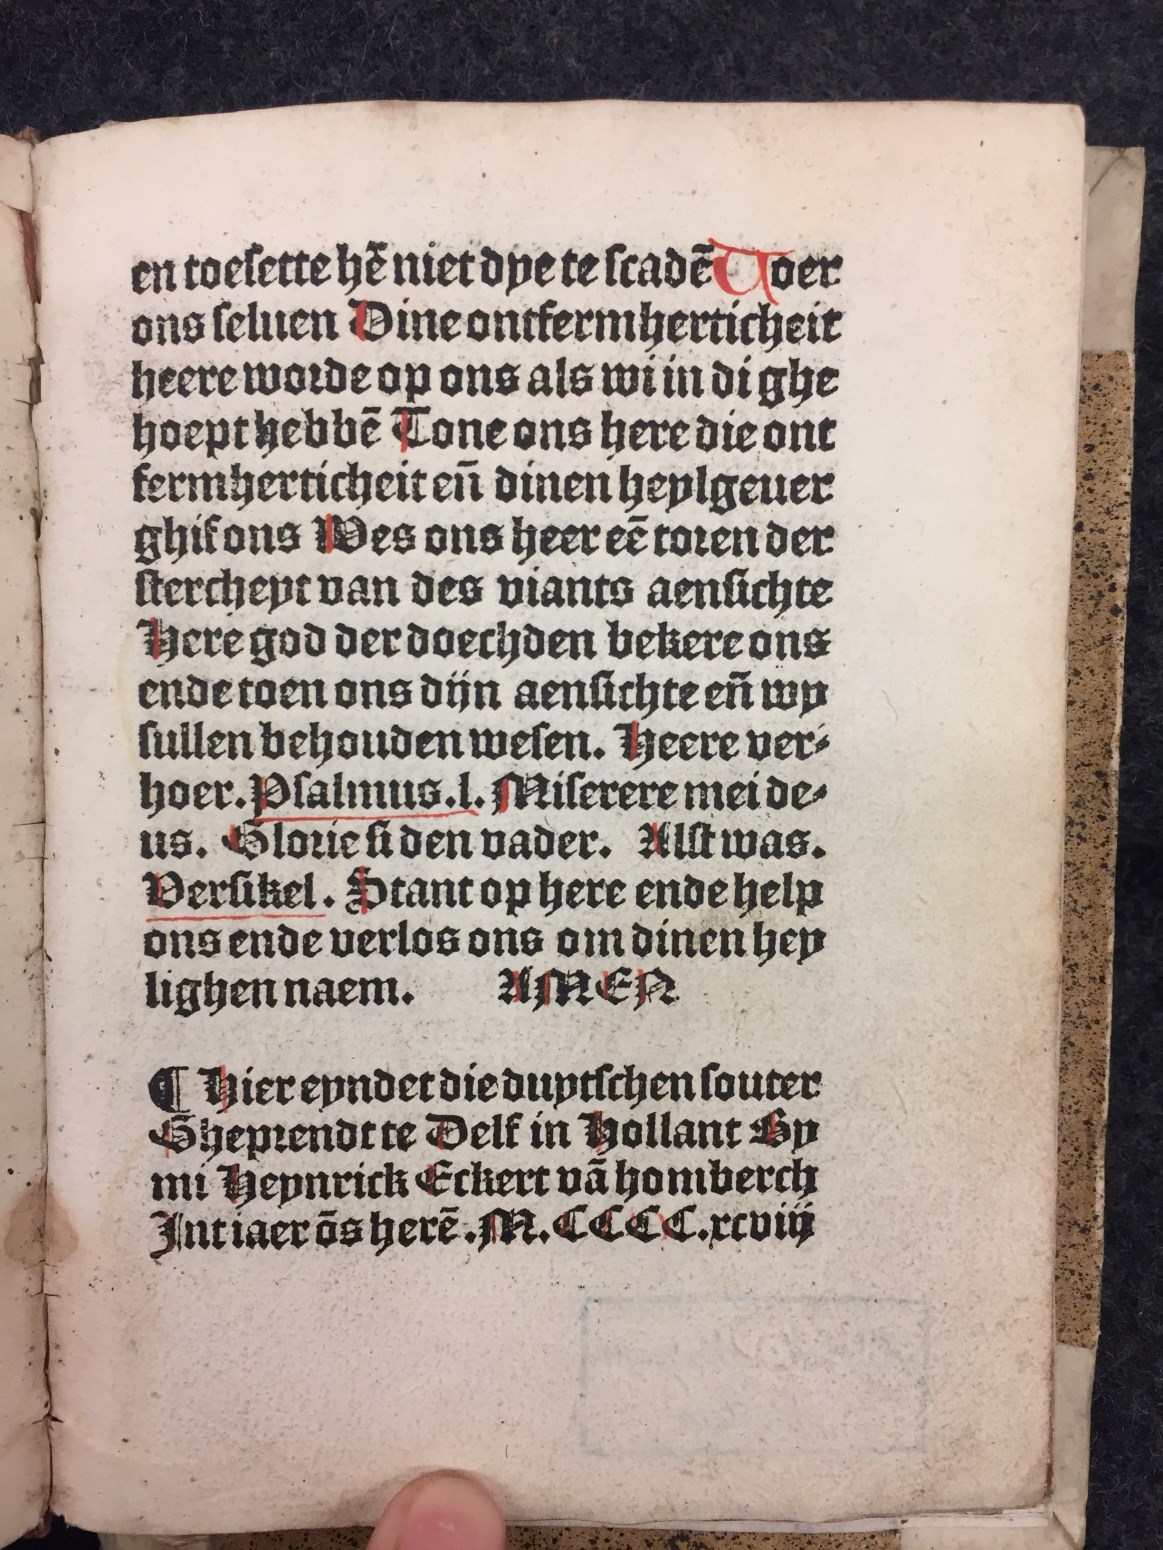 en toesette hē niet dye te scadē Voer
ons seluen Dine ontfermherticheit
heere worde op ons als wi in di ghe
hoept hebbē Tone ons here die ont
fermherticheit eñ dinen heylgeuer
ghif ons Wes ons heer eē toren der
stercheyt van des viants aensichte
Here god der doechden bekere ons
ende toen ons dijn aensichte eñ wy
sullen behouden wesen. Heere ver-
hoer. Psalmus.l. Miserere mei de-
us. Glorie si den vader. Alst was.
Versikel. Stant op here ende help
ons ende verlos ons om dinen hey
lighen naem. AMEN
¶ Hier eyndet die duytschen souter
Gheprendt te Delf in Hollant By
mi Heynrick Eckert vā homberch
Int iaer ōs herē .M.CCCC.xcviij